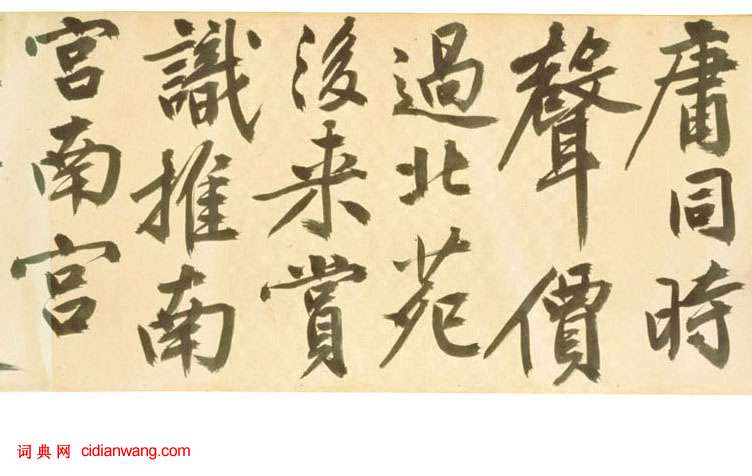 庸同時
聲價
過北苑
後来賞
識推南
宮南宫
词典网 cidianwang.com